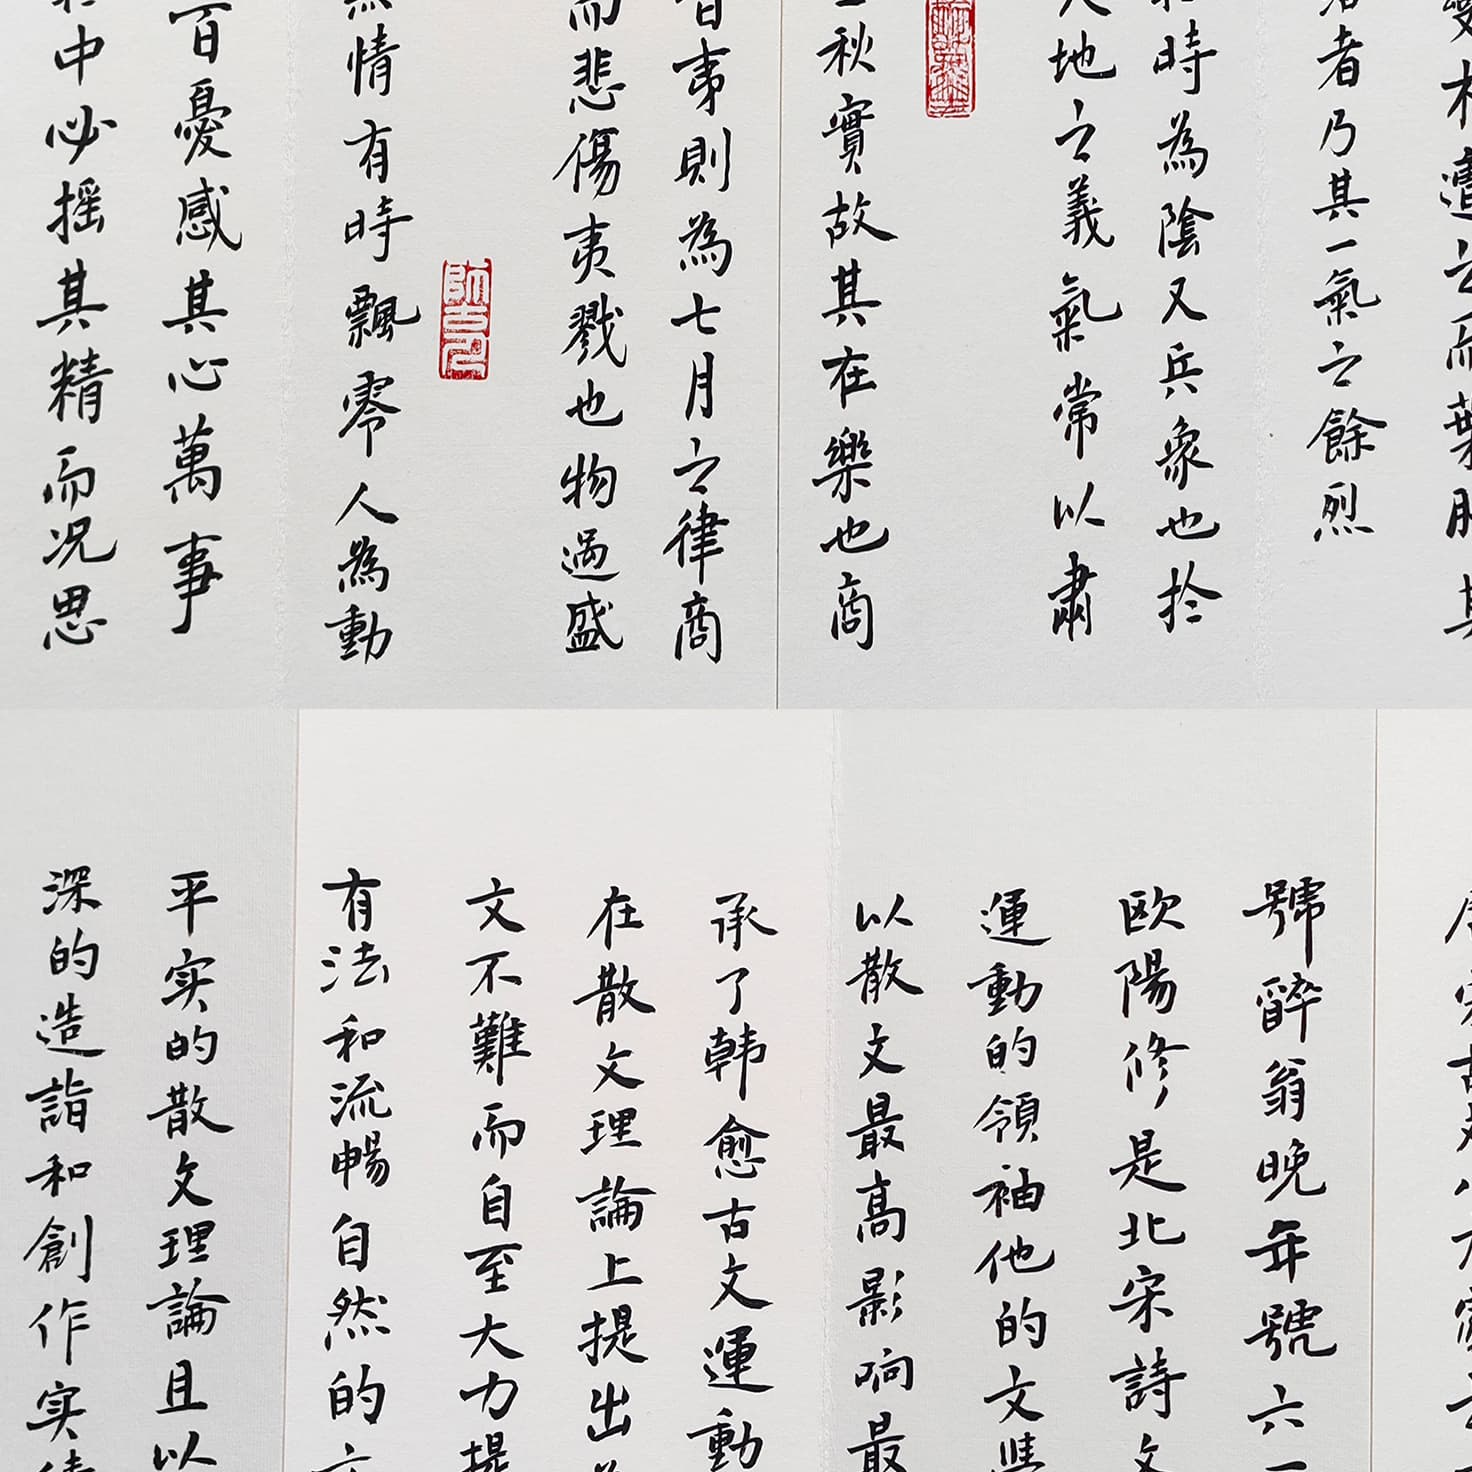 相遭之而葉脫其
者乃其一氣之餘烈
時為陰又兵象也於
地之義氣常以肅
秋實故其在樂也商
夷則為七月之律商
而悲傷夷戮也物過盛
情有時飄零人為動
百憂感其心萬事
中必搖其精而况思
號醉翁晚年號六一
欧陽修是北宋詩文
運動的領袖他的文
以散文最高影响最
承了韩愈古文運動
在散文理論上提出
文不難而自至大力提
有法和流暢自然的
平实的散文理論且以
深的造詣和創作实